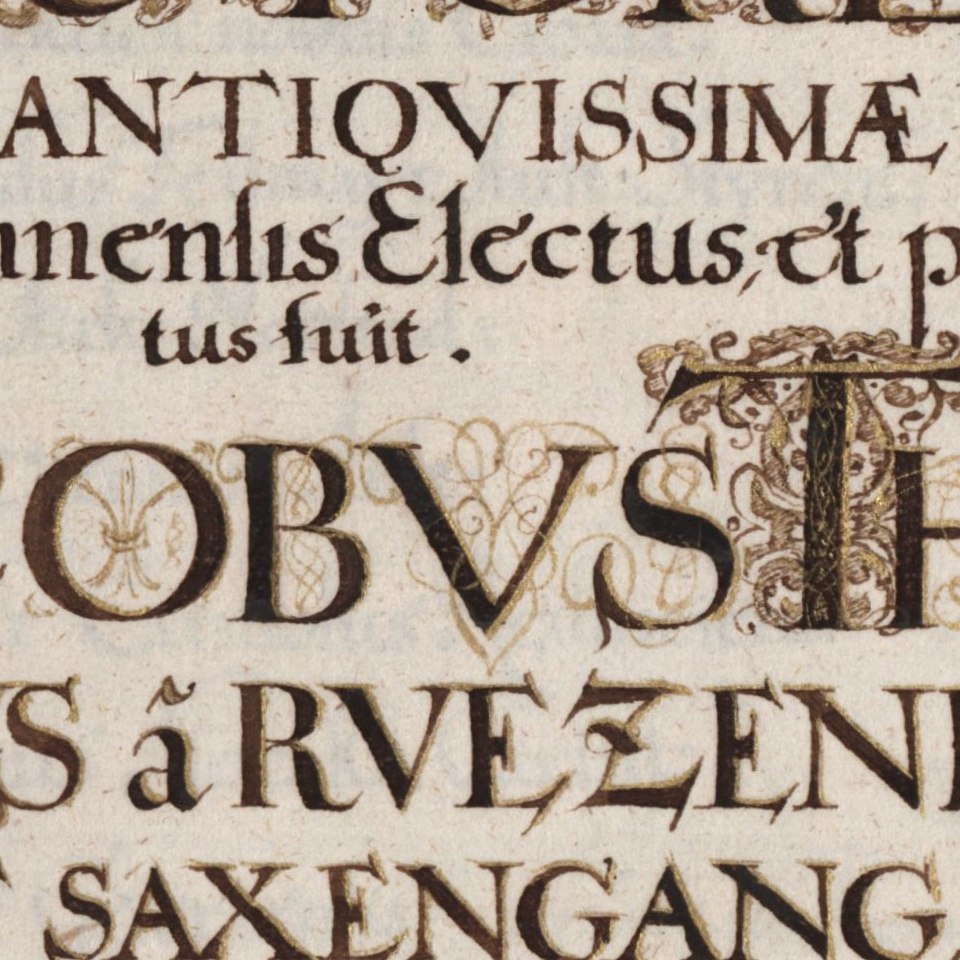 ANTIQVISSIMÆ
mensis Electus, et p
tus fuit.
OBVS TH
S ã RVEZEN
SAXENGANG